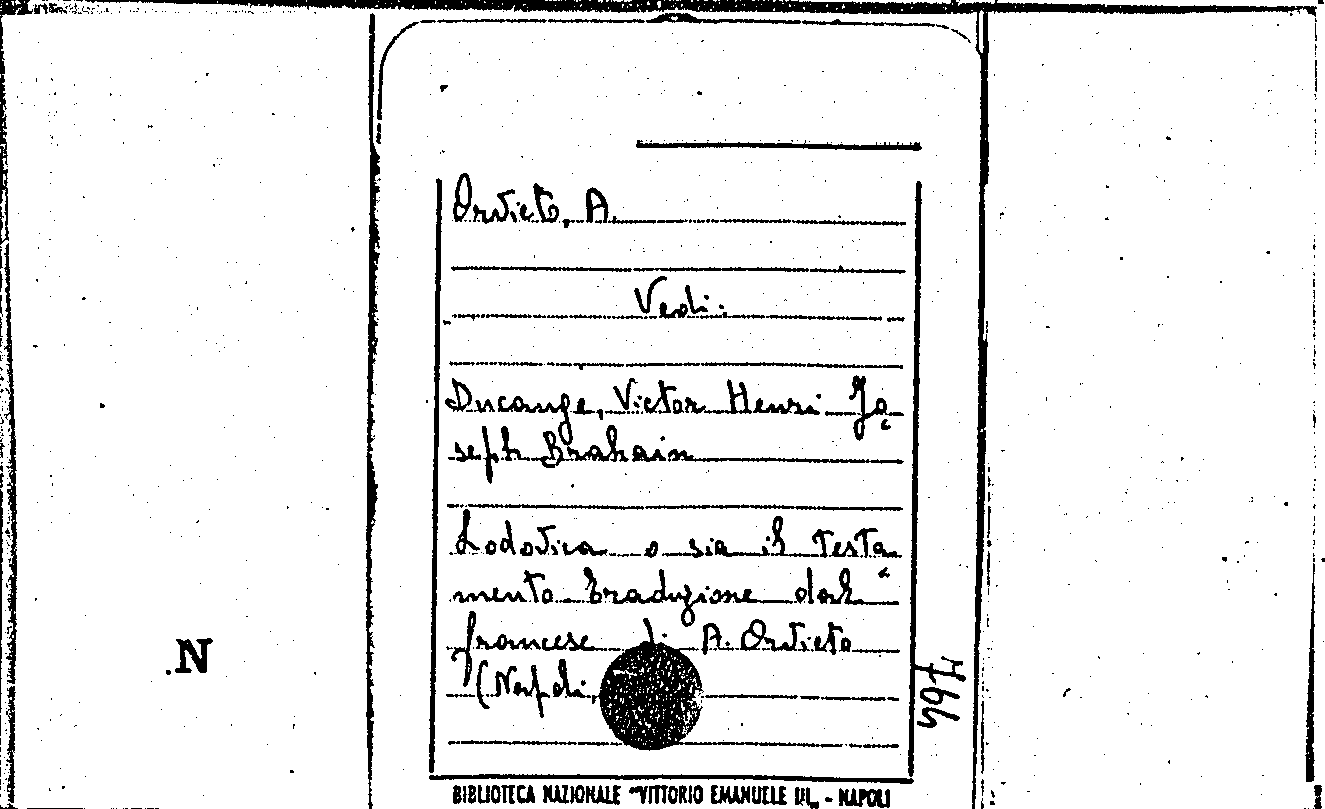 Orvieto, A.
Vedi:
Ducange, Victor Henri Jo=
seph Brahain
Lodovica o sia il testa=
mento traduzione dal
francese di A. Orvieto
(Napoli,
N
BIBLIOTECA NAZIONALE "VITTORIO EMANUELE III„ - NAPOLI